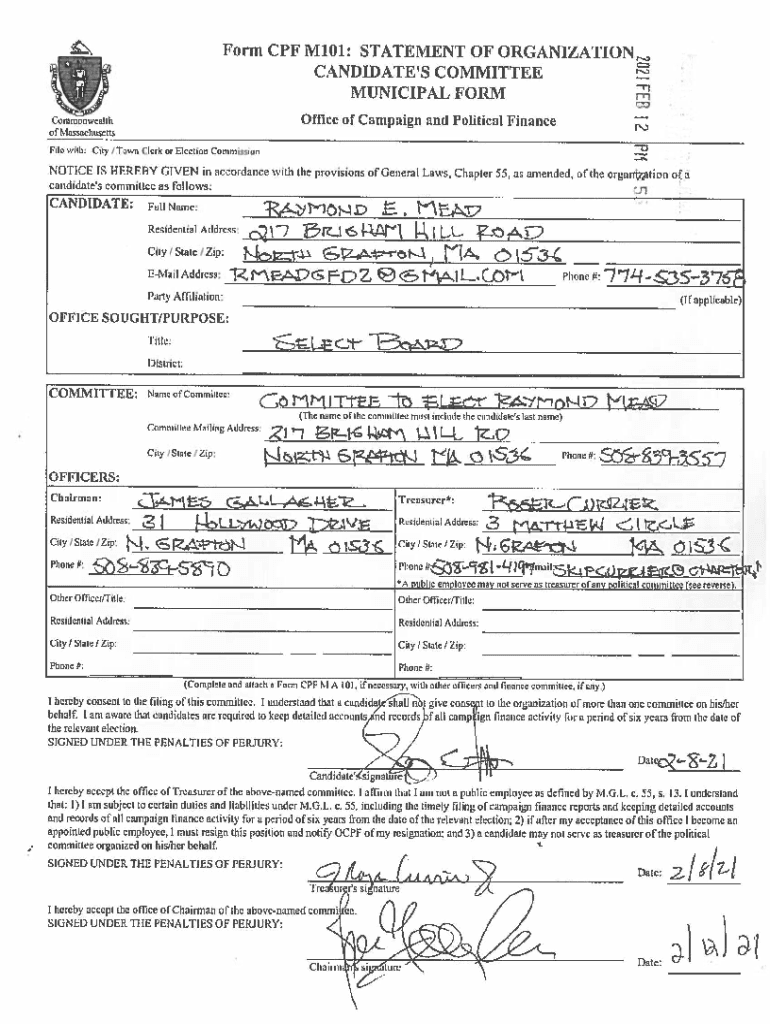 Form CPF M101: STATEMENT OF ORGANIZATION
CANDIDATE'S COMMITTEE
MUNICIPAL FORM
Office of Campaign and Political Finance
Commonwealth
of Massachusetts
2021 FEB 12 PM
File with: City / Town Clerk or Election Commission
NOTICE IS HEREBY GIVEN in accordance with the provisions of General Laws, Chapter 55, as amended, of the organization of a
candidate's committee as follows:
CANDIDATE: Full Name: RAYMOND E. MEAD
Residential Address: 217 BRIGHAM HILL ROAD
City / State / Zip: NORTH GRAFTON, MA 01536
E-Mail Address: RMEADGFD2@GMAIL.COM Phone #: 774-535-3768
Party Affiliation: (If applicable)
OFFICE SOUGHT/PURPOSE:
Title: SELECT BOARD
District:
COMMITTEE: Name of Committee: COMMITTEE TO ELECT RAYMOND MEAD
(The name of the committee must include the candidate's last name)
Committee Mailing Address: 217 BRIGHAM HILL RD
City / State / Zip: NORTH GRAFTON MA 01536 Phone #: 508-839-3557
OFFICERS:
Chairman: JAMES GALLAGHER Treasurer*: ROGER CURRIER
Residential Address: 31 HOLLYWOOD DRIVE Residential Address: 3 MATTHEW CIRCLE
City / State / Zip: N. GRAFTON MA 01536 City / State / Zip: N. GRAFTON MA 01536
Phone #: 508-839-5890 Phone #: 508-981-4197 Email: SKIPCURRIER@CHARTER.
*A public employee may not serve as treasurer of any political committee (see reverse).
Other Officer/Title: Other Officer/Title:
Residential Address: Residential Address:
City / State / Zip: City / State / Zip:
Phone #: Phone #:
(Complete and attach a Form CPF M A 101, if necessary, with other officers and finance committee, if any.)
I hereby consent to the filing of this committee. I understand that a candidate shall not give consent to the organization of more than one committee on his/her
behalf. I am aware that candidates are required to keep detailed accounts and records of all campaign finance activity for a period of six years from the date of
the relevant election.
SIGNED UNDER THE PENALTIES OF PERJURY:
Date: 2-8-21
Candidate's signature
I hereby accept the office of Treasurer of the above-named committee. I affirm that I am not a public employee as defined by M.G.L. c. 55, s. 13. I understand
that: 1) I am subject to certain duties and liabilities under M.G.L. c. 55, including the timely filing of campaign finance reports and keeping detailed accounts
and records of all campaign finance activity for a period of six years from the date of the relevant election; 2) if after my acceptance of this office I become an
appointed public employee, I must resign this position and notify OCPF of my resignation; and 3) a candidate may not serve as treasurer of the political
committee organized on his/her behalf.
SIGNED UNDER THE PENALTIES OF PERJURY:
Date: 2/8/21
Treasurer's signature
I hereby accept the office of Chairman of the above-named committee.
SIGNED UNDER THE PENALTIES OF PERJURY:
Date: 2/12/21
Chairman's signature